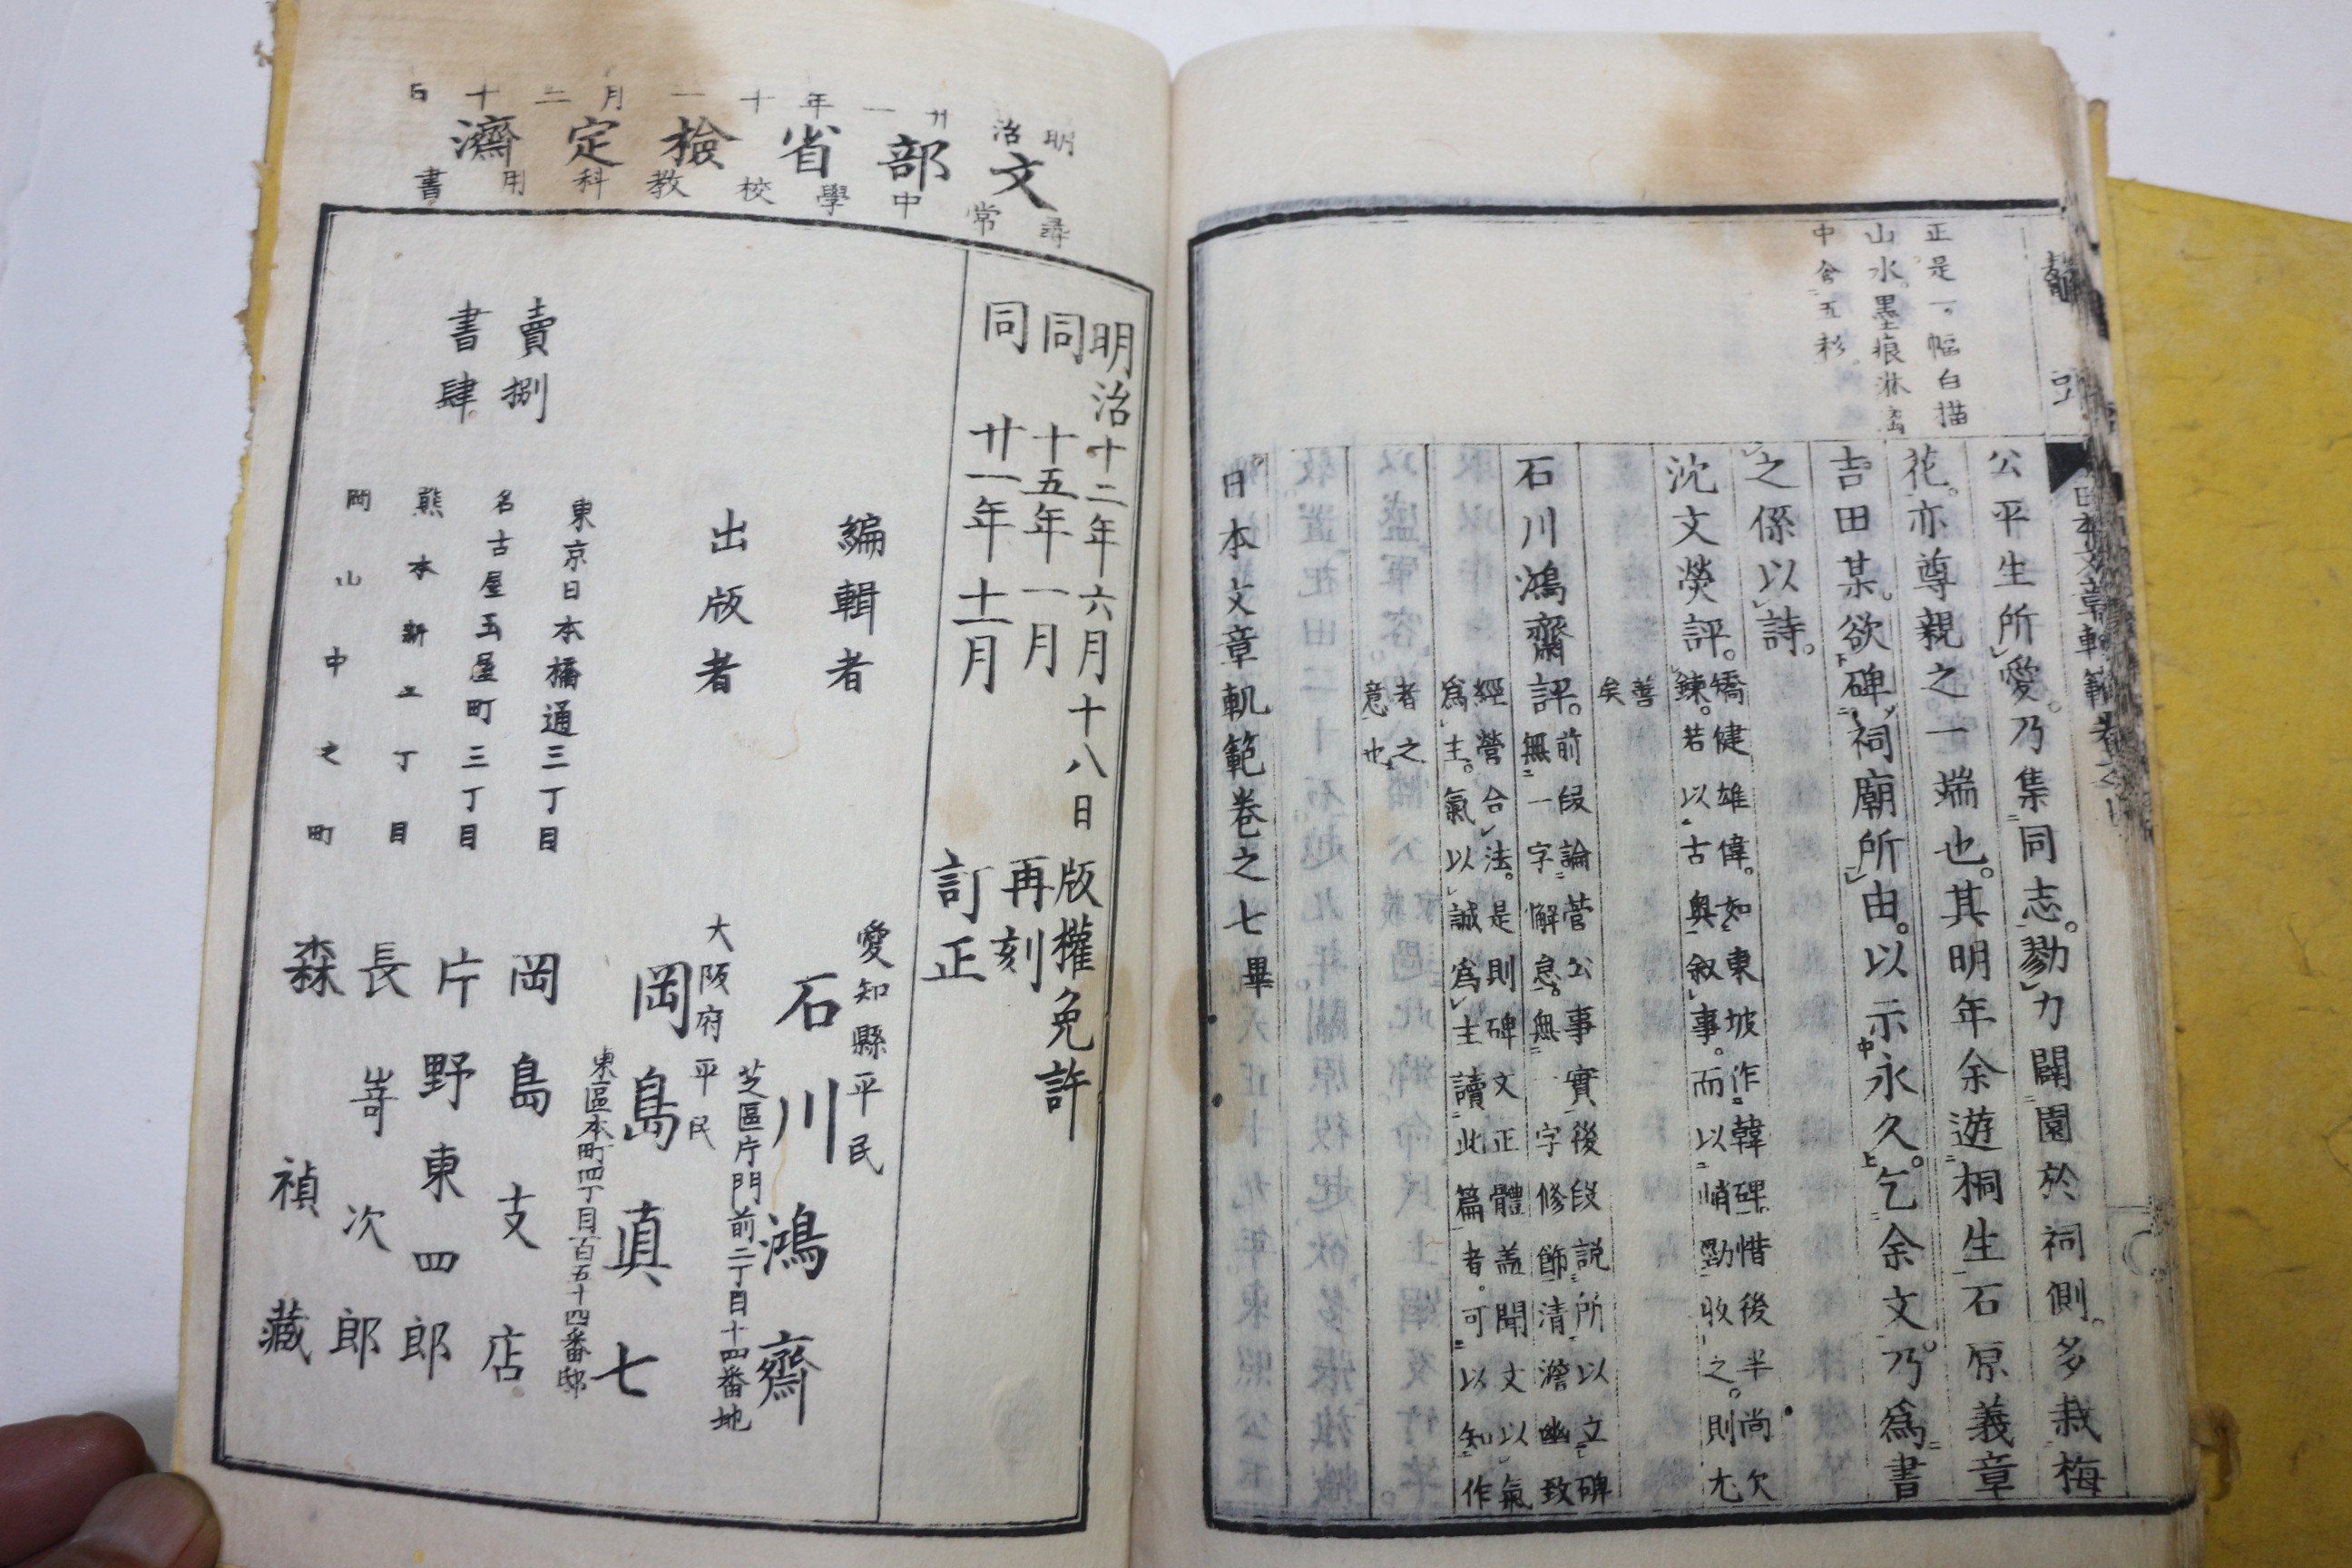 正是一幅白描
山水。墨痕淋漓
中含五彩
公平生所愛。乃集同志。勠力闢園於祠側。多栽梅
花。亦尊親之一端也。其明年余遊桐生石原義章
吉田某。欲碑祠廟所由。以示永久。乞余文。乃爲書
之係以詩。
沈文熒評。矯健雄偉。如東坡作韓碑。惜後半尚欠
鍊。若以古奧叙事。而以峭勁收之。則尤
善
矣
石川鴻齋評。前段論菅公事實後段説所以立碑
無一字解怠。無一字修飾清澹幽致
經營合法。是則碑文正體蓋聞文以氣
爲主。氣以誠爲主讀此篇者。可以知作
者之
意也
日本文章軌範卷之七畢
明治廿一年十一月二十日
文部省檢定濟
尋常中學校教科用書
明治十二年六月十八日版權免許
同十五年一月再刻
同廿一年十一月訂正
編輯者
愛知縣平民
石川鴻齋
芝區片門前二丁目十四番地
出版者
大阪府平民
岡島真七
東區本町四丁目百五十四番邸
賣捌
書肆
東京日本橋通三丁目
岡島支店
名古屋玉屋町三丁目
片野東四郎
熊本新二丁目
長嵜次郎
岡山中之町
森禎藏